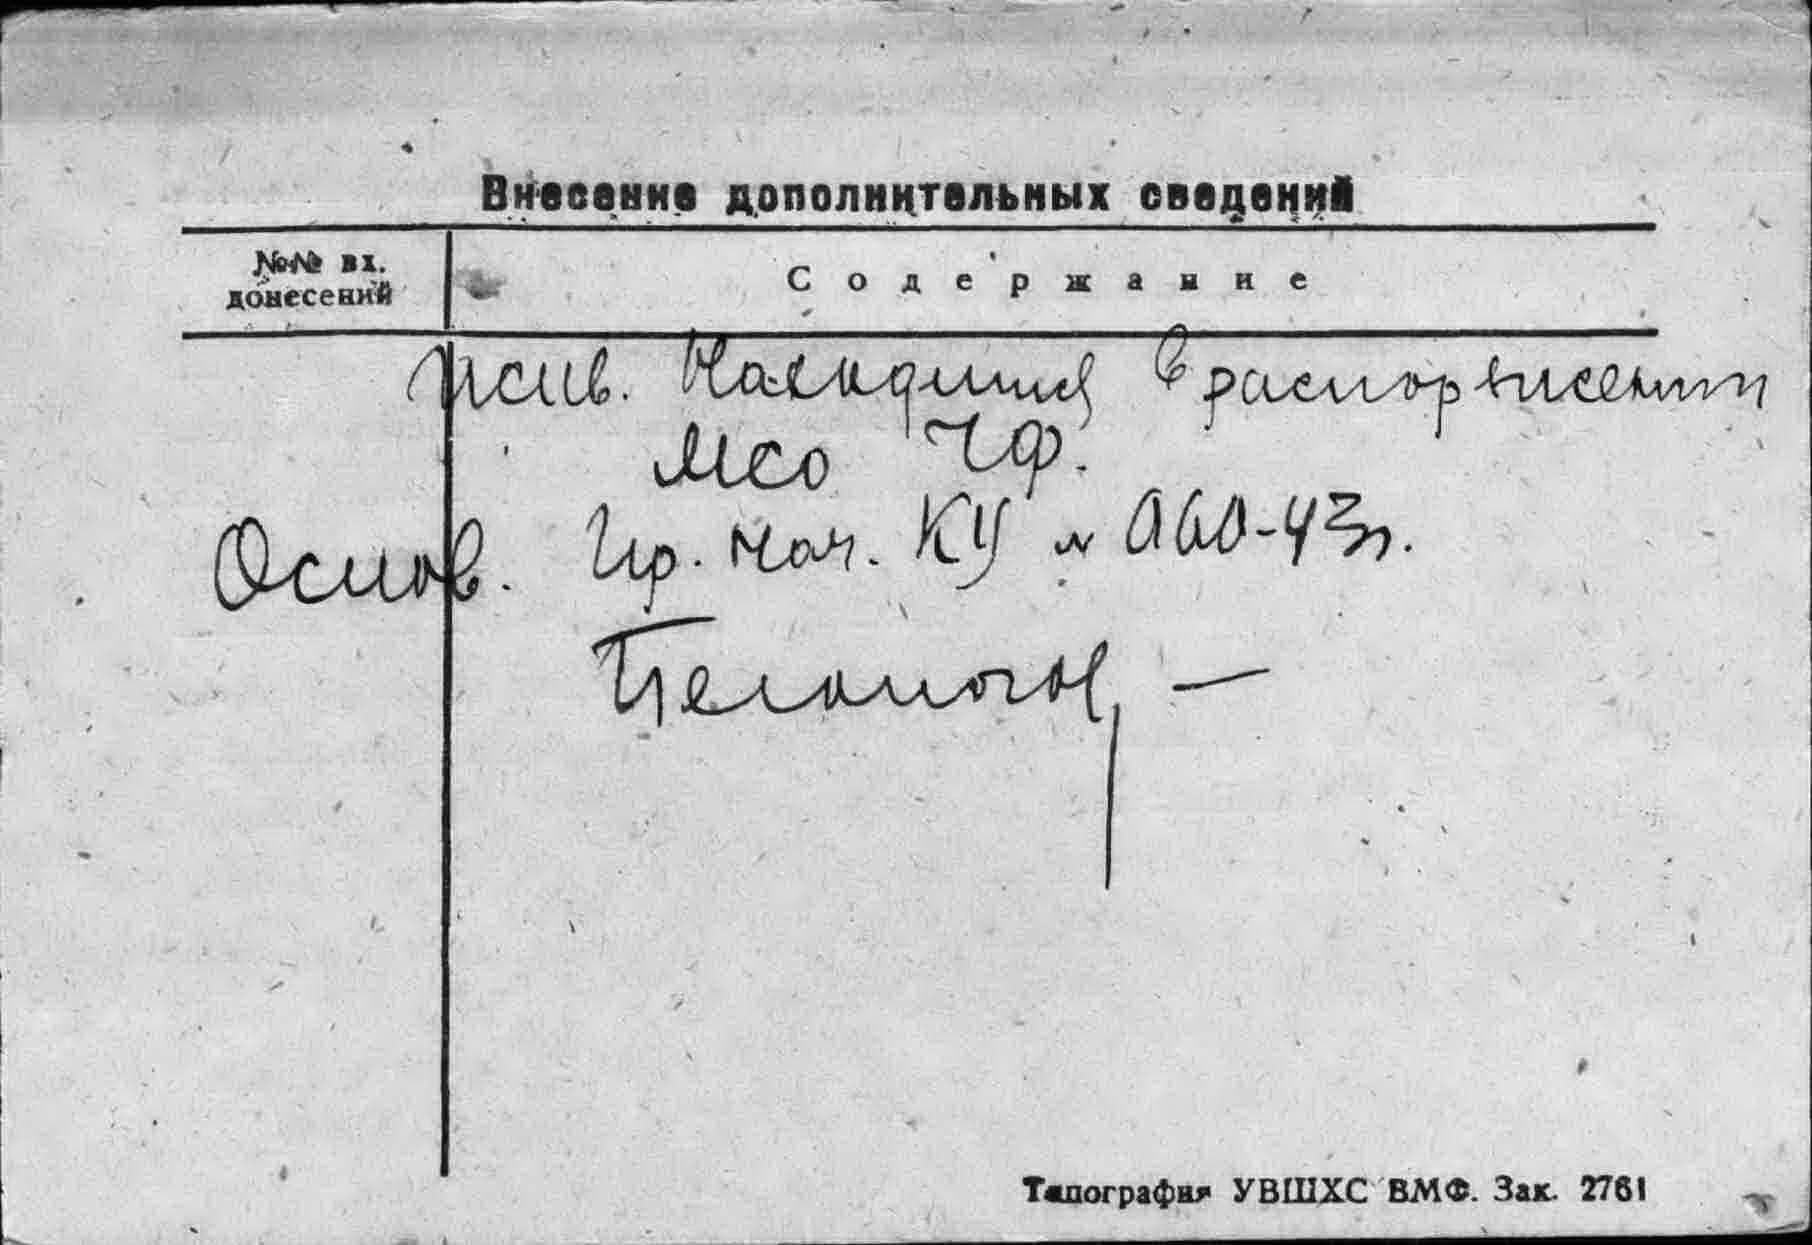 Внесение дополнительных сведений
№№ вх.
донесений
Содержание
жив. Находится в распоряжении
МСО ЧФ.
Основ. Пр. нач. КУ № 060-43г.
Типография УВШХС ВМФ. Зак. 2761